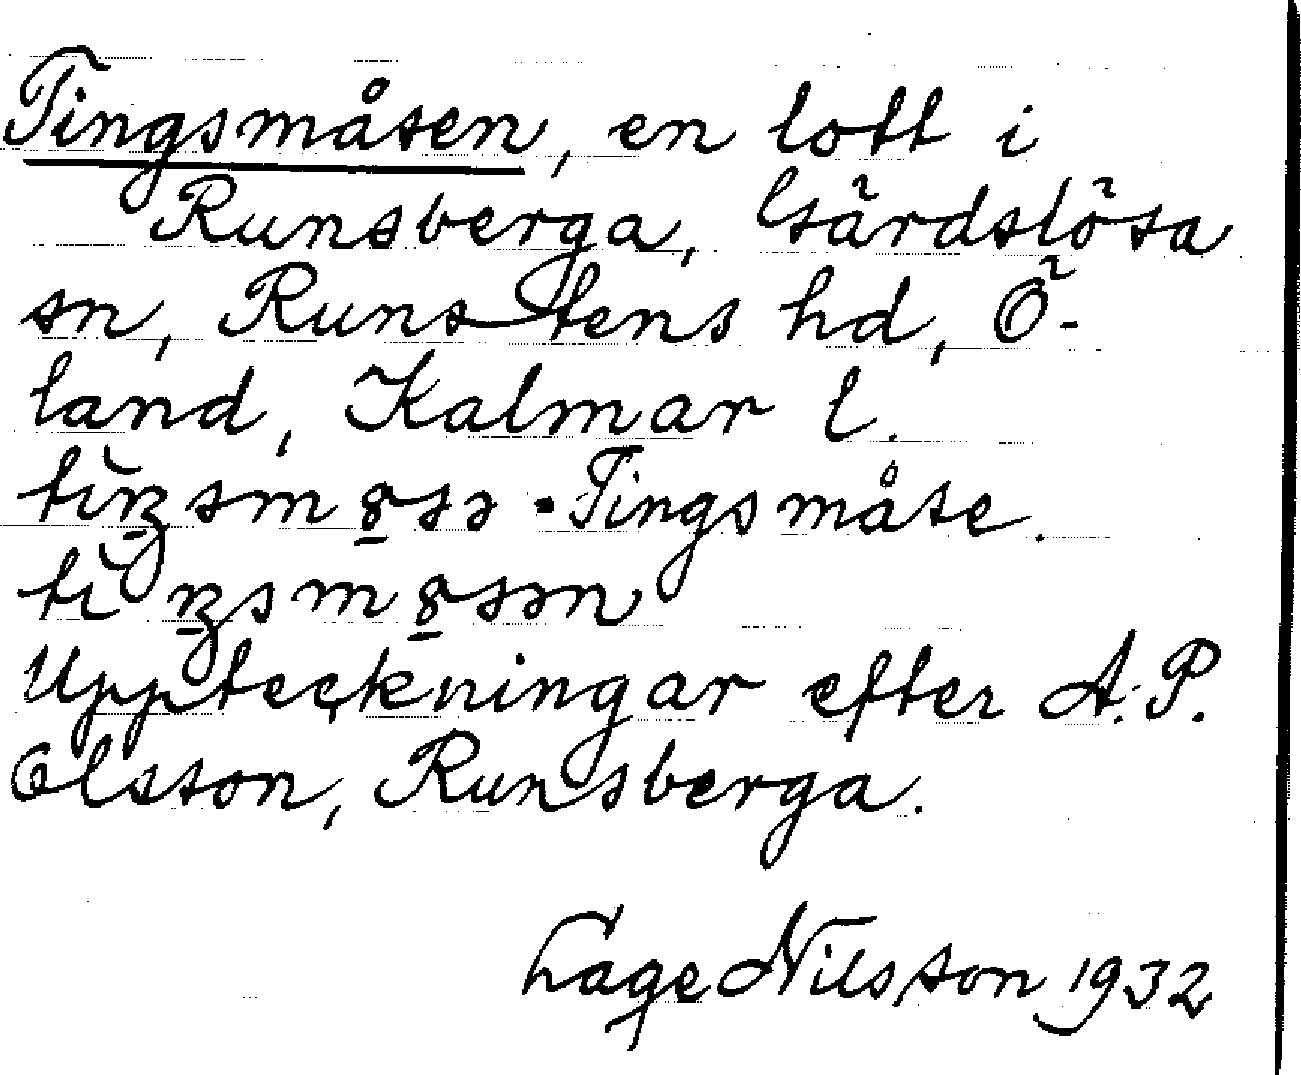 Tingsmåsen, en lott i
Runsberga, Gärdslösa
sn, Runstens hd, Ö-
land, Kalmar l.
Tingsmåse.
Uppteckningar efter A. P.
Olsson, Runsberga.
Lage Nilsson 1932